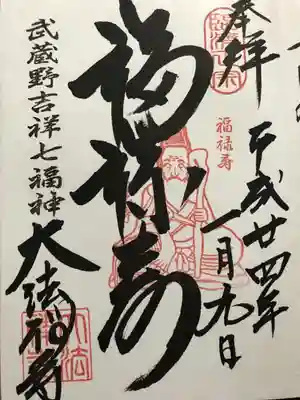 奉拝
平成廿四年
一月九日
福禄寿
福禄寿
武蔵野吉祥七福神
大法禅寺